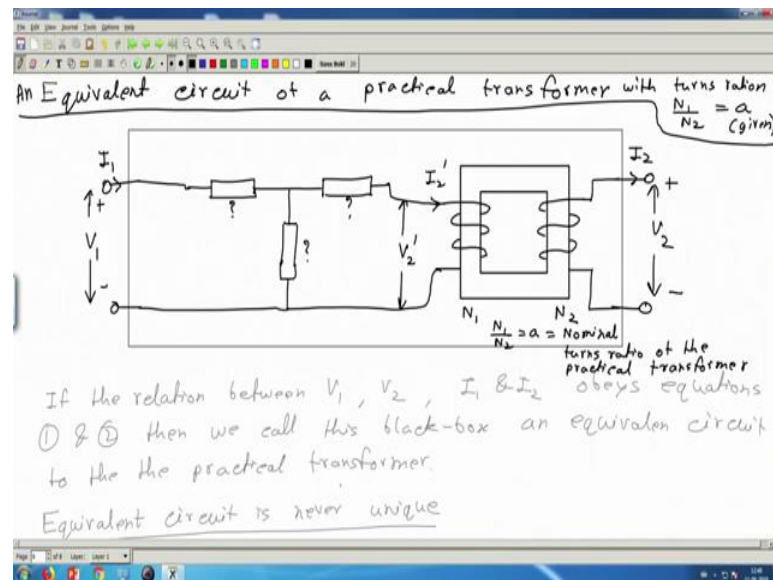 File Edit View Journal Tools Options Help
An Equivalent circuit of a practical transformer with turns ration
N1/N2 = a
(given)
I1
I2'
I2
+
+
?
?
?
V1
V2'
V2
-
-
N1
N2
N1/N2 = a = Nominal
turns ratio of the
practical transformer
If the relation between V1, V2, I1 & I2 obeys equations
① & ② then we call this black-box an equivalen circuit
to the the practical transformer.
Equivalent circuit is never unique
Layer: Layer 1